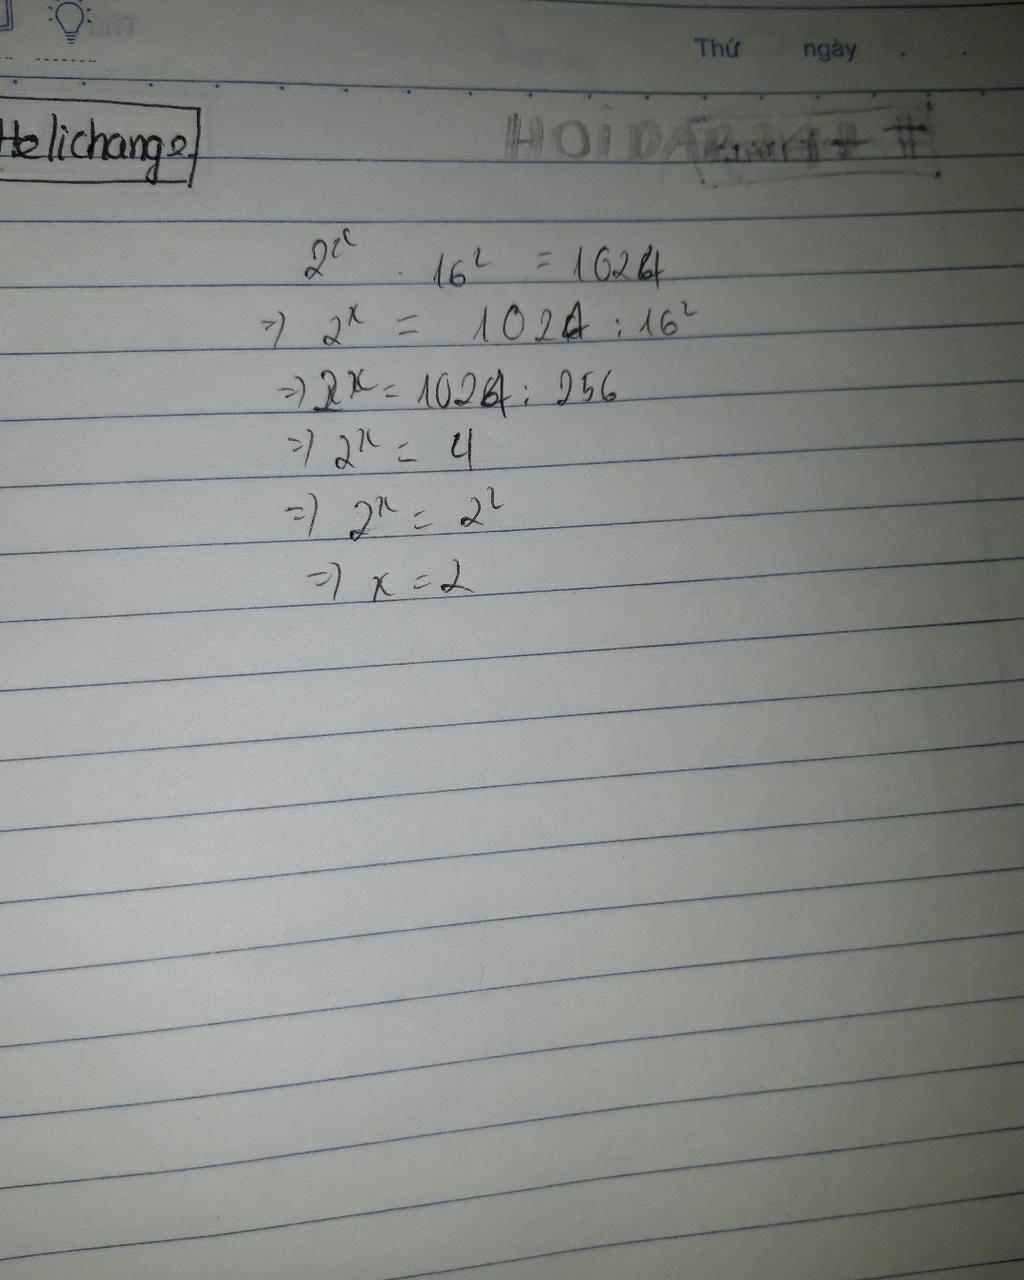 Thứ ngày
Helichange
HOIDAP247
2ˣ . 16² = 1024
=) 2ˣ = 1024 : 16²
=) 2ˣ = 1024 : 256
=) 2ˣ = 4
=) 2ˣ = 2²
=) x = 2